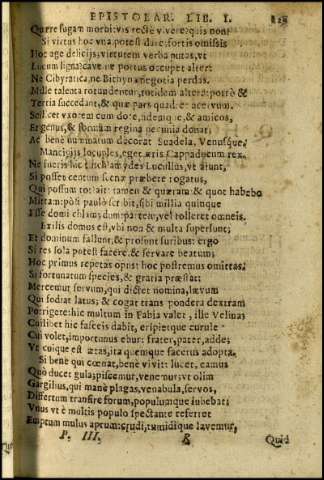 EPISTOLAR. LIB. I.
Quære fugam morbi: vis rectè vivere? quis non?
Si virtus hoc vna potest dare, fortis omissis
Hoc age deliciis, virtutem verba putas, vt
Lucum ligna: cave ne portus occupet alter:
Ne Cibyratica, ne Bithyna negotia perdas.
Mille talenta rotundentur, totidem altera: porrò &
Tertia succedant, & quæ pars quadret acervum.
Scilicet vxorem cum dote, fidemque, & amicos,
Et genus, & formam regina pecunia donat,
Ac bene nummatum decorat Suadela, Venusque.
Mancipiis locuples, eget æris Cappadocum rex.
Ne fueris hic tu: chlamydes Lucullus, vt aiunt,
Si posset centum scenæ præbere rogatus,
Qui possum tot? ait: tamen & quæram: & quot habebo
Mittam: pòst paulò scribit, sibi millia quinque
Esse domi chlamydum: partem, vel tolleret omneis.
Exilis domus est, vbi non & multa supersunt;
Et dominum fallunt, & prosunt furibus: ergo
Si res sola potest facere, & servare beatum;
Hoc primus repetas opus: hoc postremus omittas.
Si fortunatum species, & gratia præstat;
Mercemur servum, qui dictet nomina, lævum
Qui fodiat latus; & cogat trans pondera dextram
Porrigere: hic multum in Fabia valet, ille Velina:
Cuilibet hic fasceis dabit, eripietque curule
Cui volet, importunus ebur: frater, pater, adde;
Vt cuique est ætas, ita quemque facetus adopta.
Si benè qui cœnat, benè vivit: lucet, eamus
Quò ducet gula: piscemur, venemur: vt olim
Gargilius, qui manè plagas, venabula, servos,
Differtum transire forum, populumque iubebat;
Vnus vt è multis populo spectante referret
Emptum mulus aprum: crudi, tumidique lavemur,
P. III. R Quid
Qu